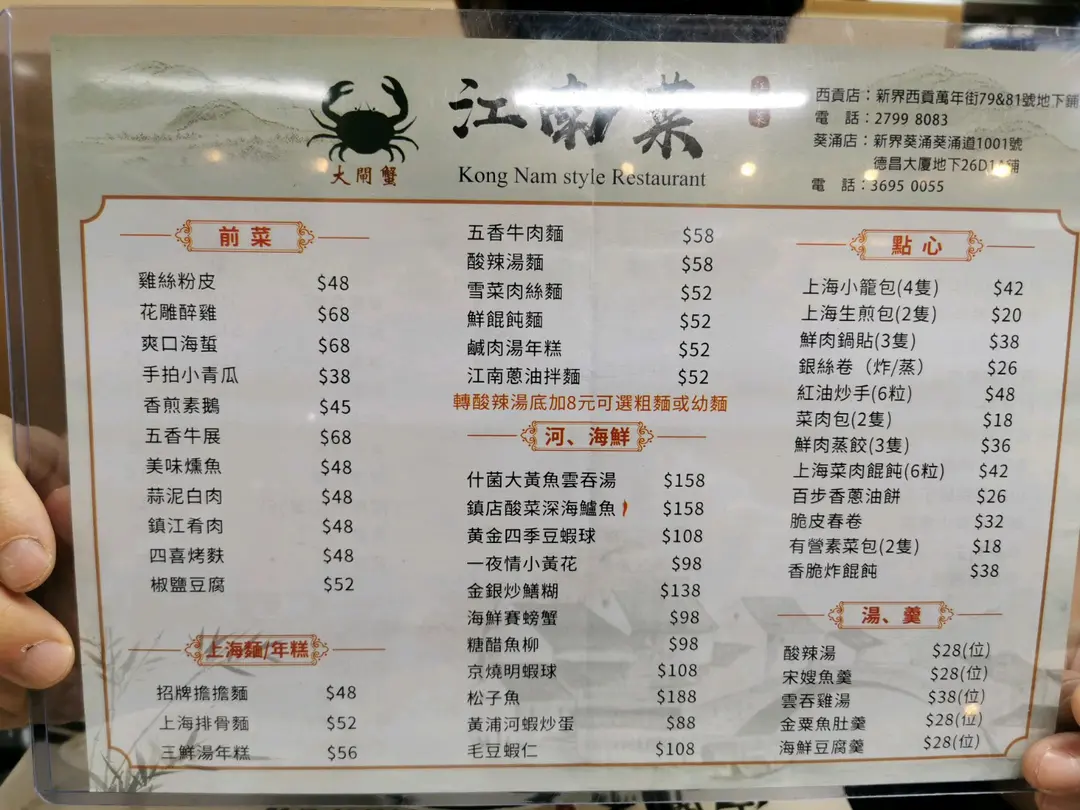 江南菜
大閘蟹
Kong Nam style Restaurant
西貢店：新界西貢萬年街79&81號地下鋪
電 話：2799 8083
葵涌店：新界葵涌葵涌道1001號
德昌大廈地下26D1A鋪
電 話：3695 0055
前菜
雞絲粉皮 $48
花雕醉雞 $68
爽口海蜇 $68
手拍小青瓜 $38
香煎素鵝 $45
五香牛展 $68
美味燻魚 $48
蒜泥白肉 $48
鎮江肴肉 $48
四喜烤麩 $48
椒鹽豆腐 $52
上海麵/年糕
招牌擔擔麵 $48
上海排骨麵 $52
三鮮湯年糕 $56
五香牛肉麵 $58
酸辣湯麵 $58
雪菜肉絲麵 $52
鮮餛飩麵 $52
鹹肉湯年糕 $52
江南蔥油拌麵 $52
轉酸辣湯底加8元可選粗麵或幼麵
河、海鮮
什菌大黃魚雲吞湯 $158
鎮店酸菜深海鱸魚 $158
黄金四季豆蝦球 $108
一夜情小黃花 $98
金銀炒鱔糊 $138
海鮮賽螃蟹 $98
糖醋魚柳 $98
京燒明蝦球 $108
松子魚 $188
黃浦河蝦炒蛋 $88
毛豆蝦仁 $108
點心
上海小籠包(4隻) $42
上海生煎包(2隻) $20
鮮肉鍋貼(3隻) $38
銀絲卷（炸/蒸） $26
紅油炒手(6粒) $48
菜肉包(2隻) $18
鮮肉蒸餃(3隻) $36
上海菜肉餛飩(6粒) $42
百步香蔥油餅 $26
脆皮春卷 $32
有營素菜包(2隻) $18
香脆炸餛飩 $38
湯、羹
酸辣湯 $28(位)
宋嫂魚羹 $28(位)
雲吞雞湯 $38(位)
金粟魚肚羹 $28(位)
海鮮豆腐羹 $28(位)